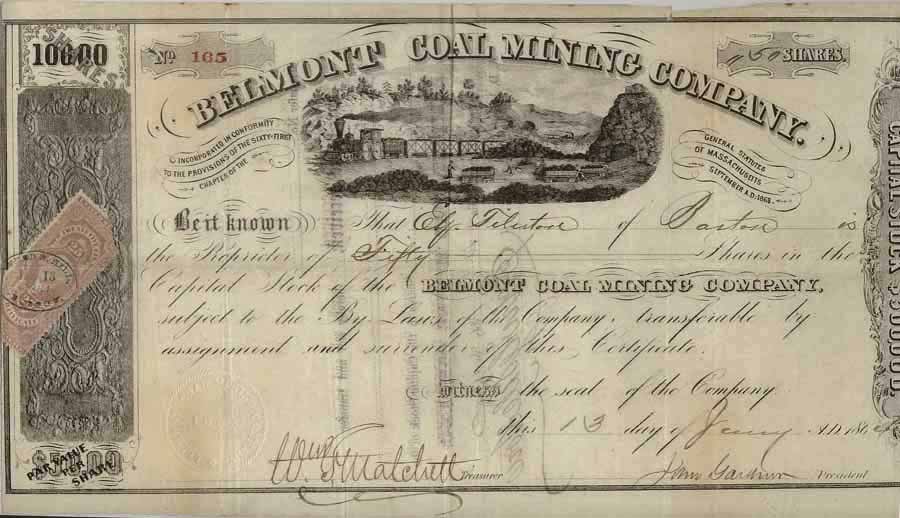 10000
SHARES
No 165
50 SHARES.
BELMONT COAL MINING COMPANY.
INCORPORATED IN CONFORMITY
TO THE PROVISIONS OF THE SIXTY-FIRST
CHAPTER OF THE
GENERAL STATUTES
OF MASSACHUSETTS
SEPTEMBER A.D. 1863.
Be it known That of Boston is
the Proprietor of Fifty Shares in the
Capital Stock of the BELMONT COAL MINING COMPANY,
subject to the By-Laws of the Company, transferable by
assignment and surrender of this Certificate.
Witness the seal of the Company.
this 13 day of A.D. 186
Treasurer
President
PAR VALUE
PER
SHARE
CAPITAL STOCK
25
13